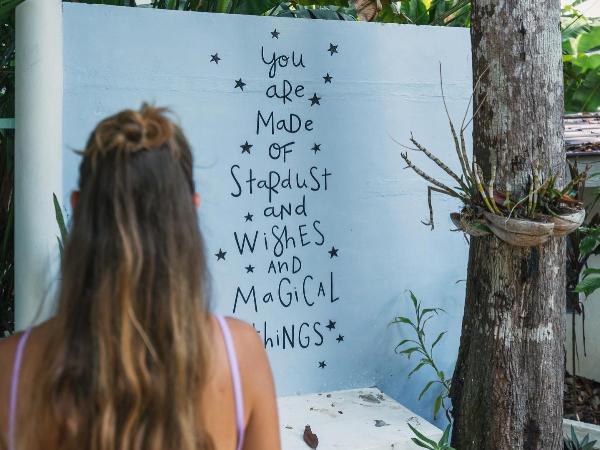 You
aRe
MaDe
OF
StaRdusT
and
WisHEs
AND
MaGiCaL
thiNGS